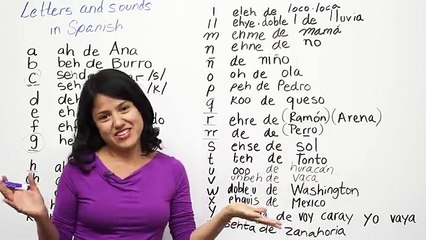 Letters and sounds
in Spanish
a ah de Ana
b beh de Burro
c
/s/
/k/
d
e
f
g
h
l eleh de loco-loca
ll ehye-doble l de lluvia
m ehme de mamá
n ehne de no
ñ de niño
o oh de ola
p peh de Pedro
q koo de queso
r ehre de (Ramón) (Arena)
rr de de (Perro)
s ehse de sol
t teh de Tonto
u ooo de huracan
v unbeh de vaca
w dobleu de Washington
x ehquis de Mexico
de voy caray yo vaya
de zanahoria